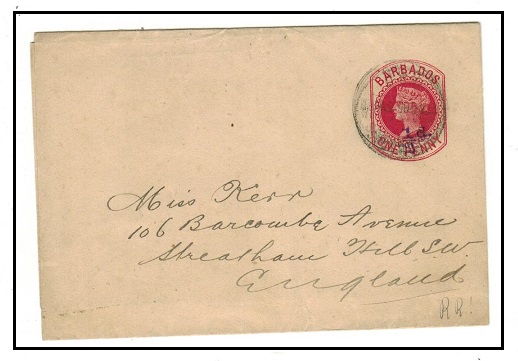 BARBADOS
ONE PENNY
Miss Kerr
106 Barcombe Avenue
Streatham Hill S.W.
England
RR!